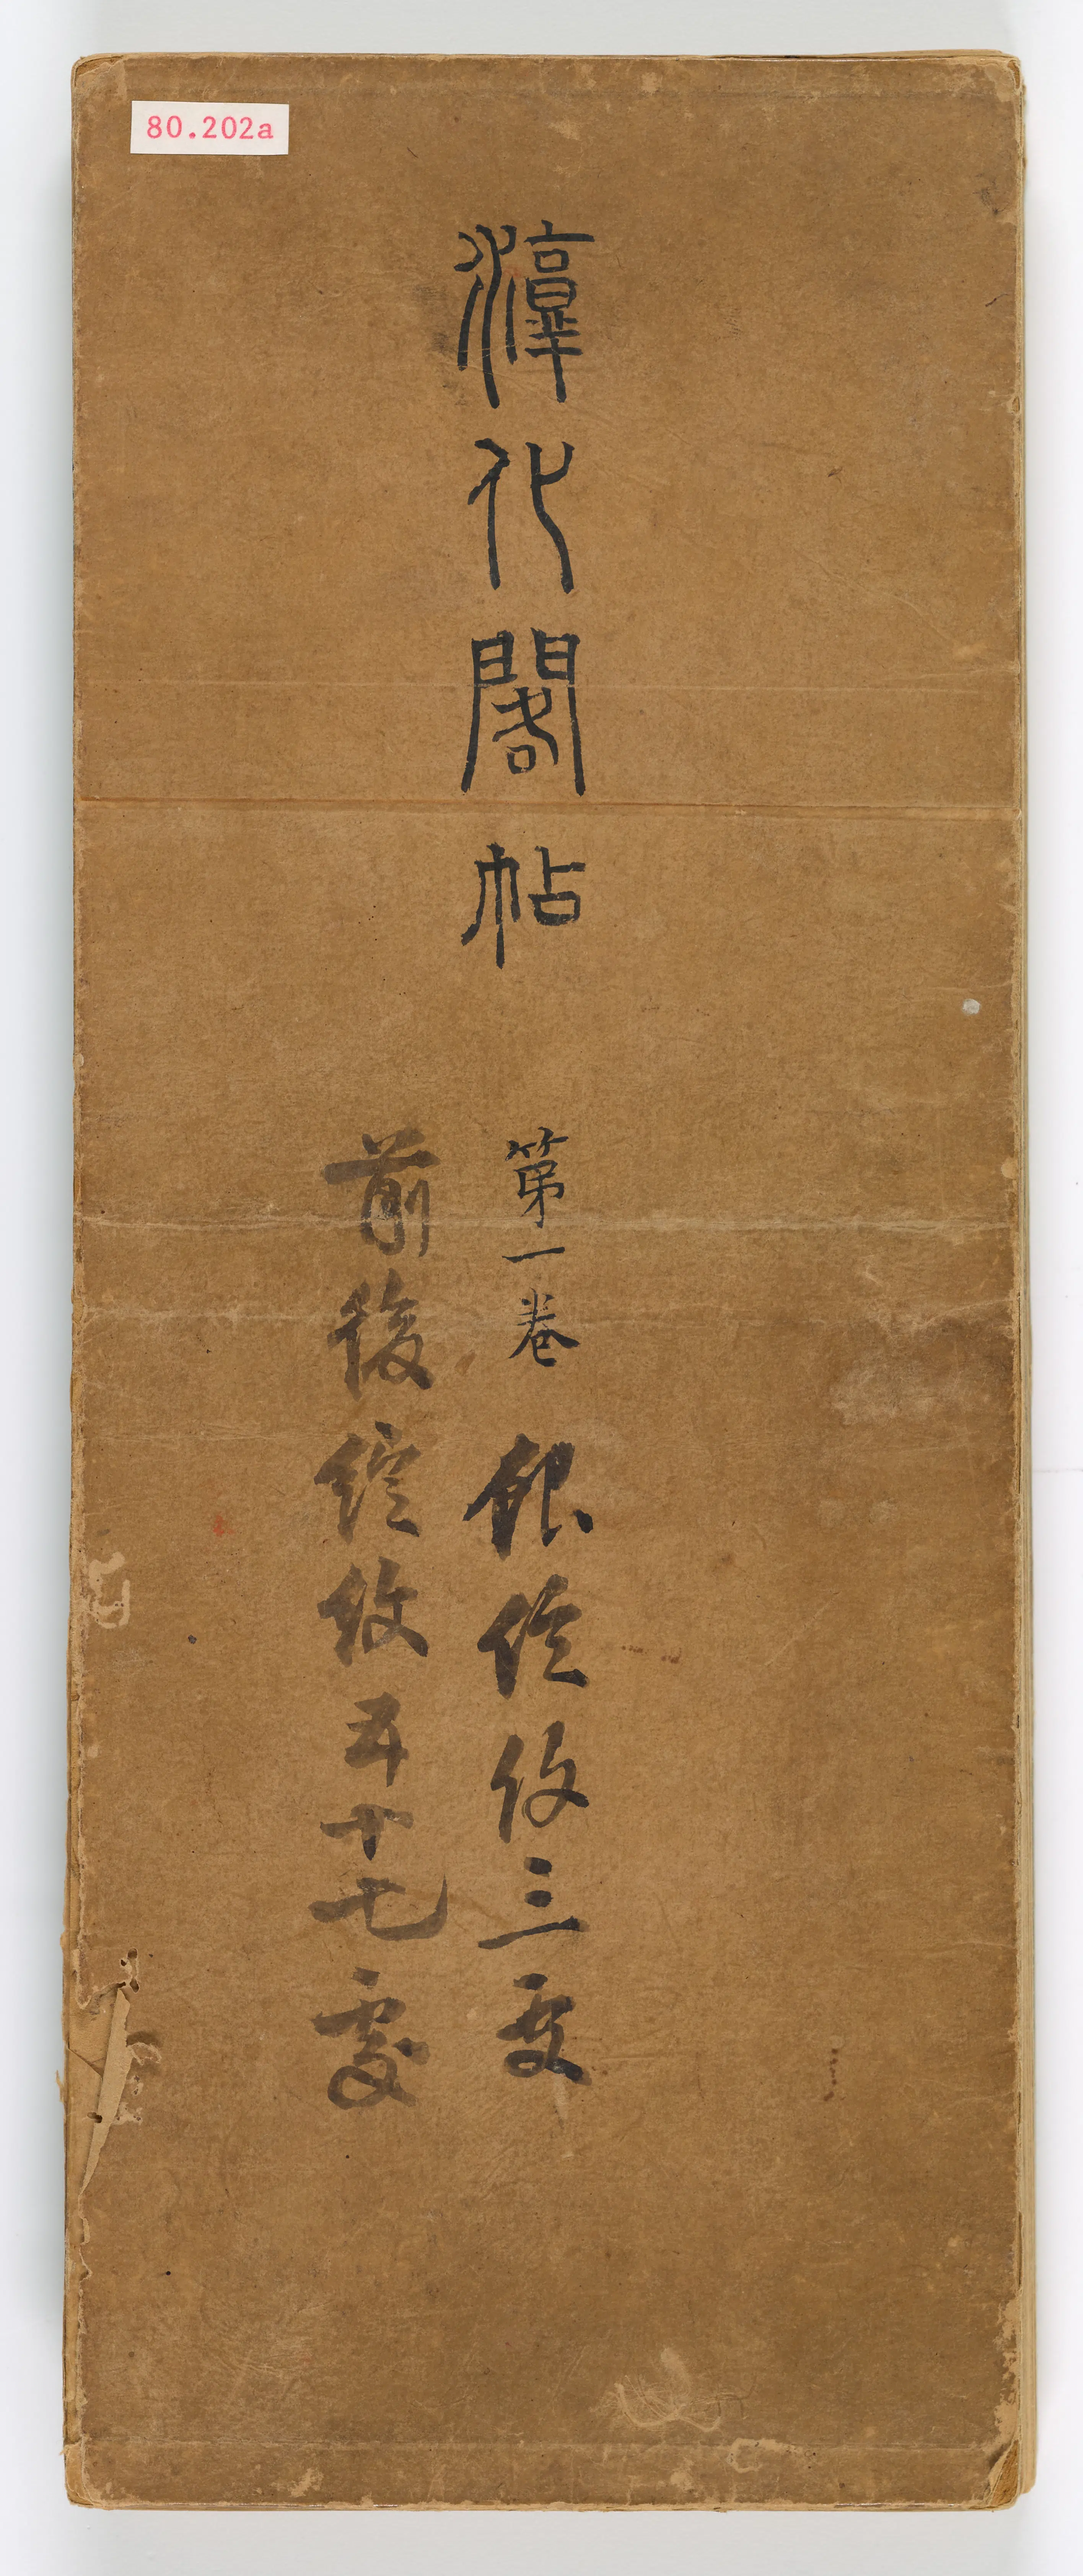 80.202a
淳化閣帖 第一卷 銀錠紋三
前後綻紋五十七處